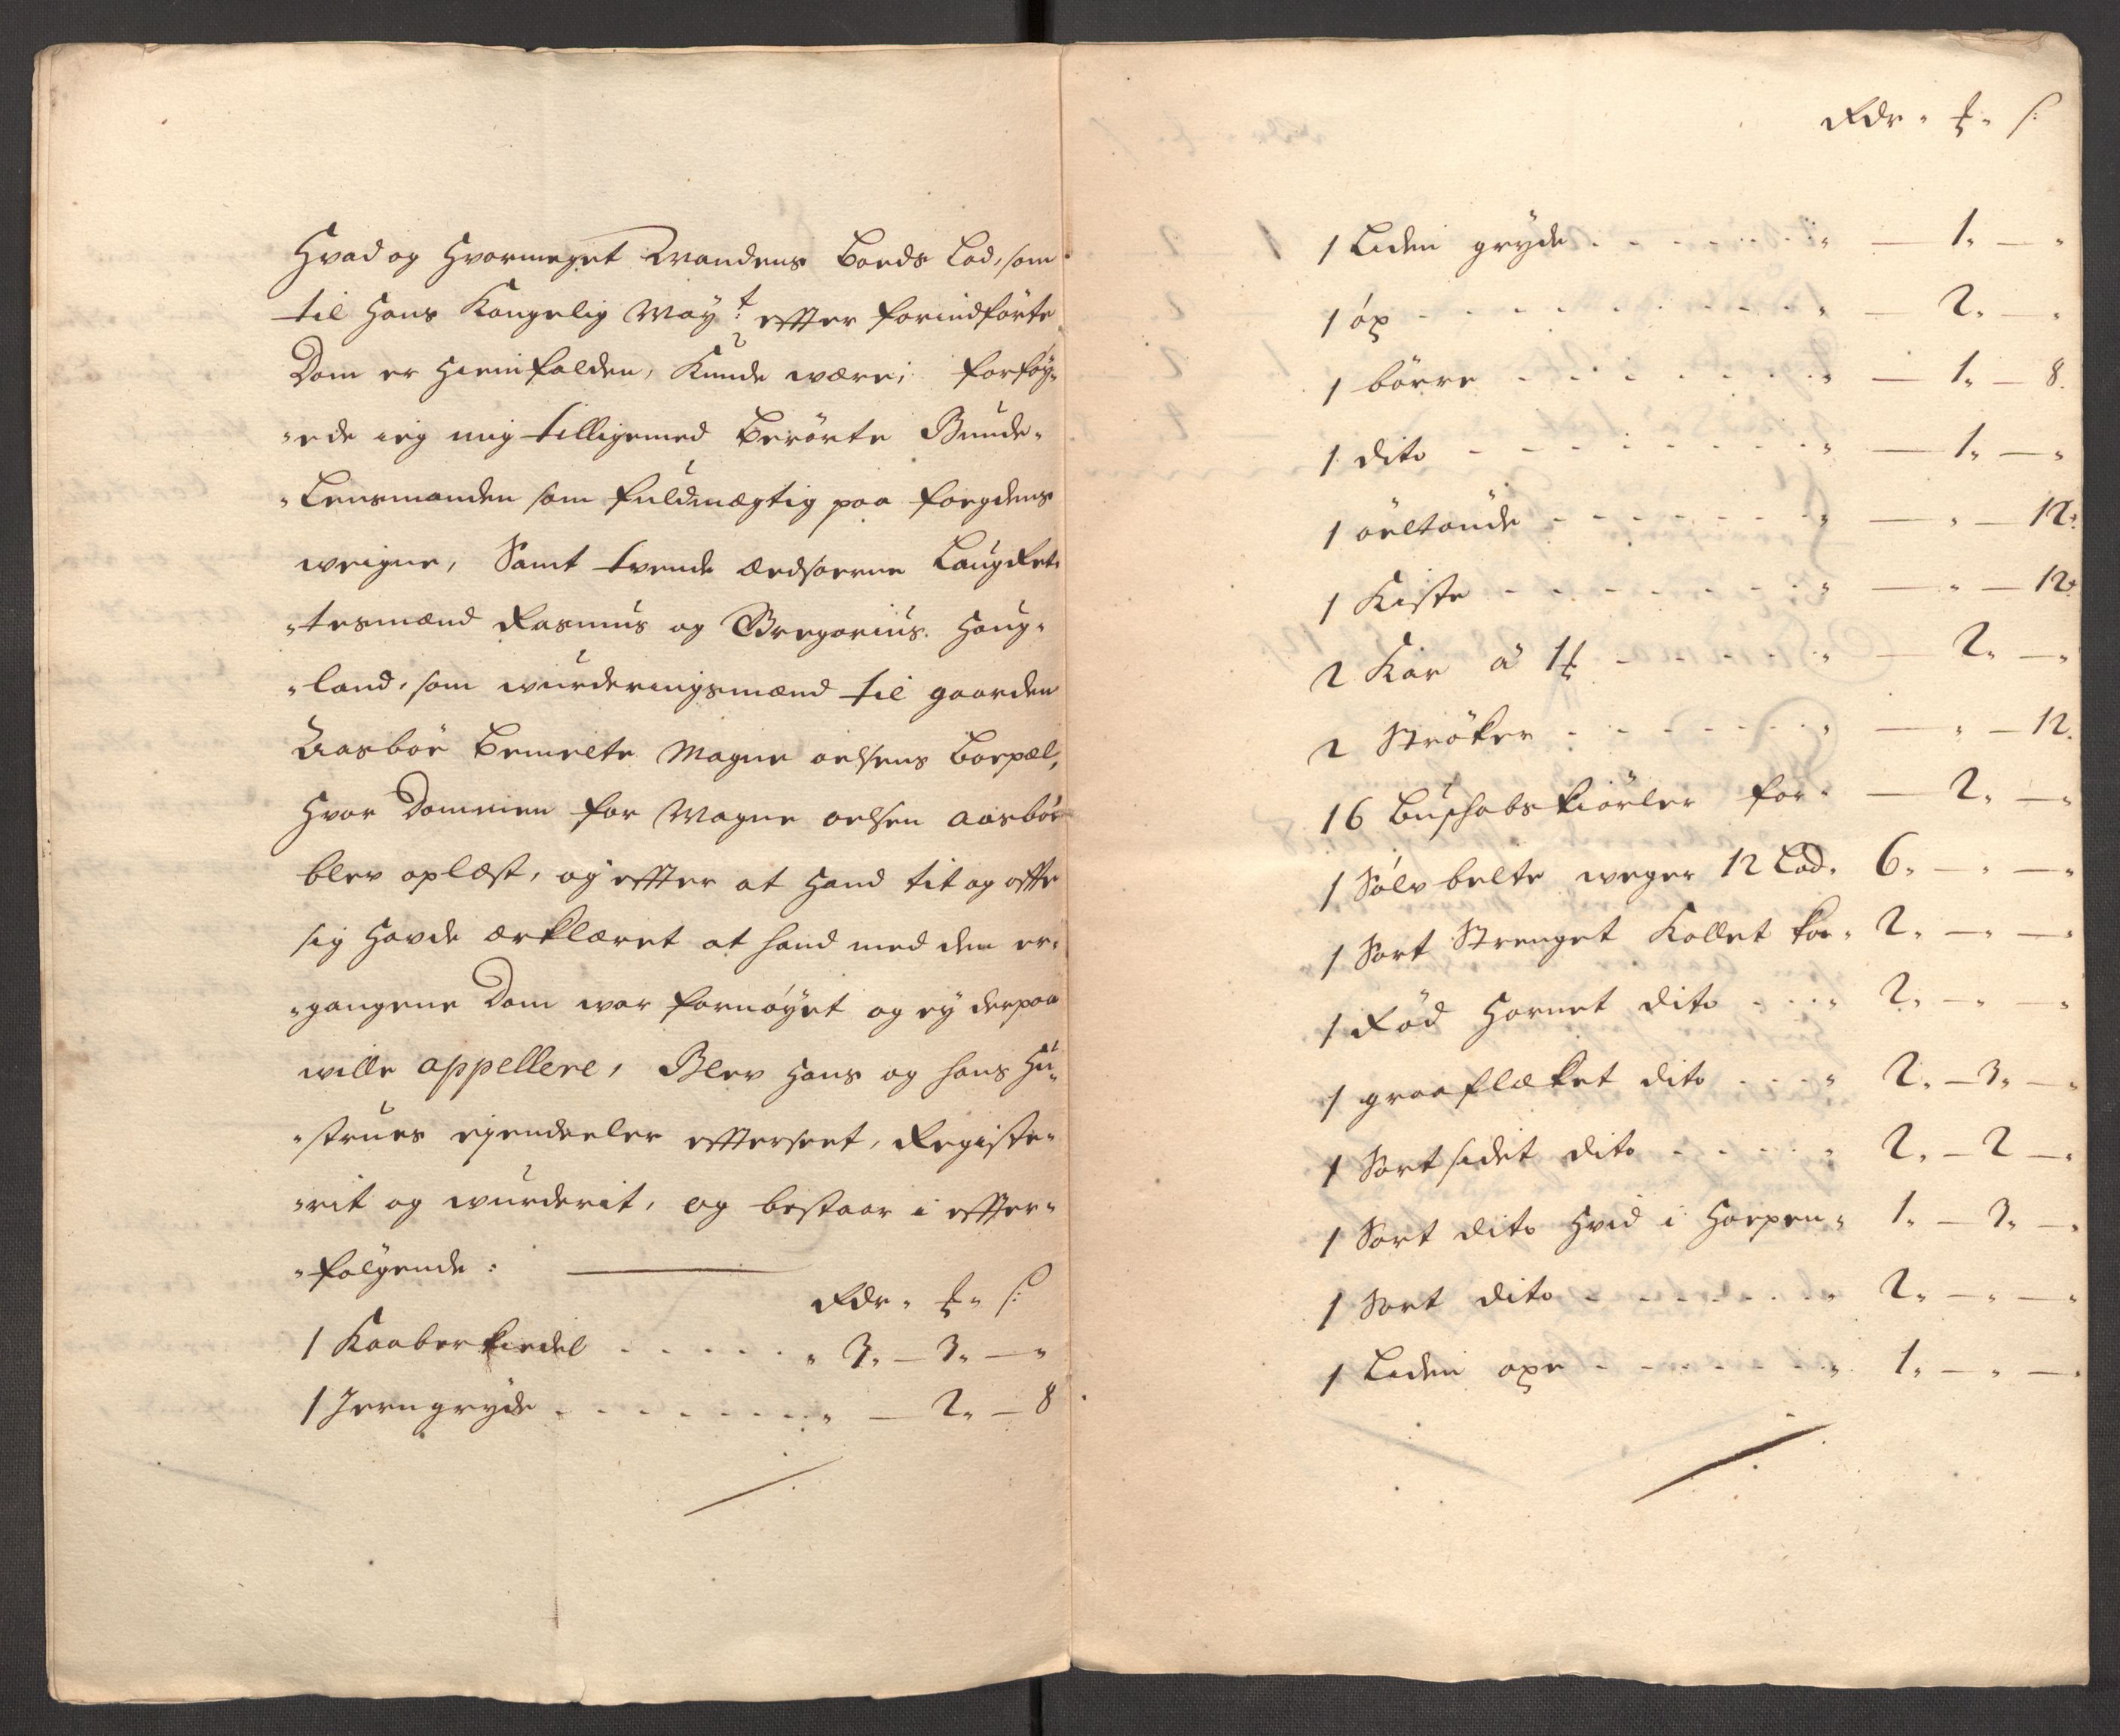 Hvad og Hvormeget Mandens Boeds Lod, som
til Hans Kongelig May:t effter forindførte
Dom er Hiemfalden, Kunde være; forføy-
-ede ieg mig tilligemed Berørte Bunde-
-Lensmanden som fuldmægtig paa fogdens
weigne, Samt tvende Eedsorne LaugRet-
-tesmænd Rasmus og Gregorius Houg-
-land, som wurderingsmænd til gaarden
Aasbøe Bemelte Magne oelsens Boepæl,
Hvor Dommen for Magne oelsen Aasbøe
blev oplæst, og effter at Hand tit og offte
sig Havde erklæret at hand med den er-
-gangene Dom war fornøyet og ey derpaa
wille appellere, Blev Hans og hans Hu-
-strues ejendeeler efftersect, Registe-
-rit og wurderit, og bestaar i effter-
-følgende:
Rdr - ƶ - s:
1 Kaaberkiedel . . . . . " 3. — 3. — "
1 Jerngryde . . . . . . . . " — 2. — 8
Rdr - ƶ - s:
1 Liden gryde . . . . . . . " — 1. — "
1 øx . . . . . . . . . . " — 2. — "
1 børre . . . . . . . . " — 1. — 8.
1 dito . . . . . . . . " — 1. — "
1 øeltønde . . . . . . . " — " — 12.
1 Kiste . . . . . . . . " — " — 12.
2 Kar à 1ƶ . . . . . . " — 2. — "
2 Strøker . . . . . . . " — " — 12.
16 Buschabskiørler for " — 2. — "
1 Sølv belte weger 12 Lod. 6. — " — "
1 Sort Strenget Kollet koe. 2. — " — "
1 Rød Hornet dito . . . " 2. — " — "
1 graaflæket dito . . . " 2. — 3. — "
1 Sortsidet dito . . . . . " 2. — 2 — "
1 Sort dito Hvid i Hoepen. 1. — 3. — "
1 Sort dito . . . . . . . " 2. — " — "
1 Liden oxe . . . . . . . " 1. — " — "